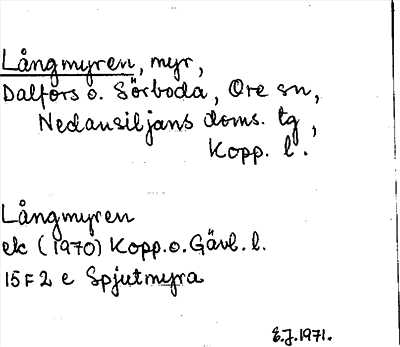 Långmyren, myr,
Dalfors o. Sörboda, Ore sn,
Nedansiljans doms. tg,
Kopp. l.
Långmyren
ek (1970) Kopp.o.Gävl.l.
15F2 e Spjutmyra
E.J.1971.